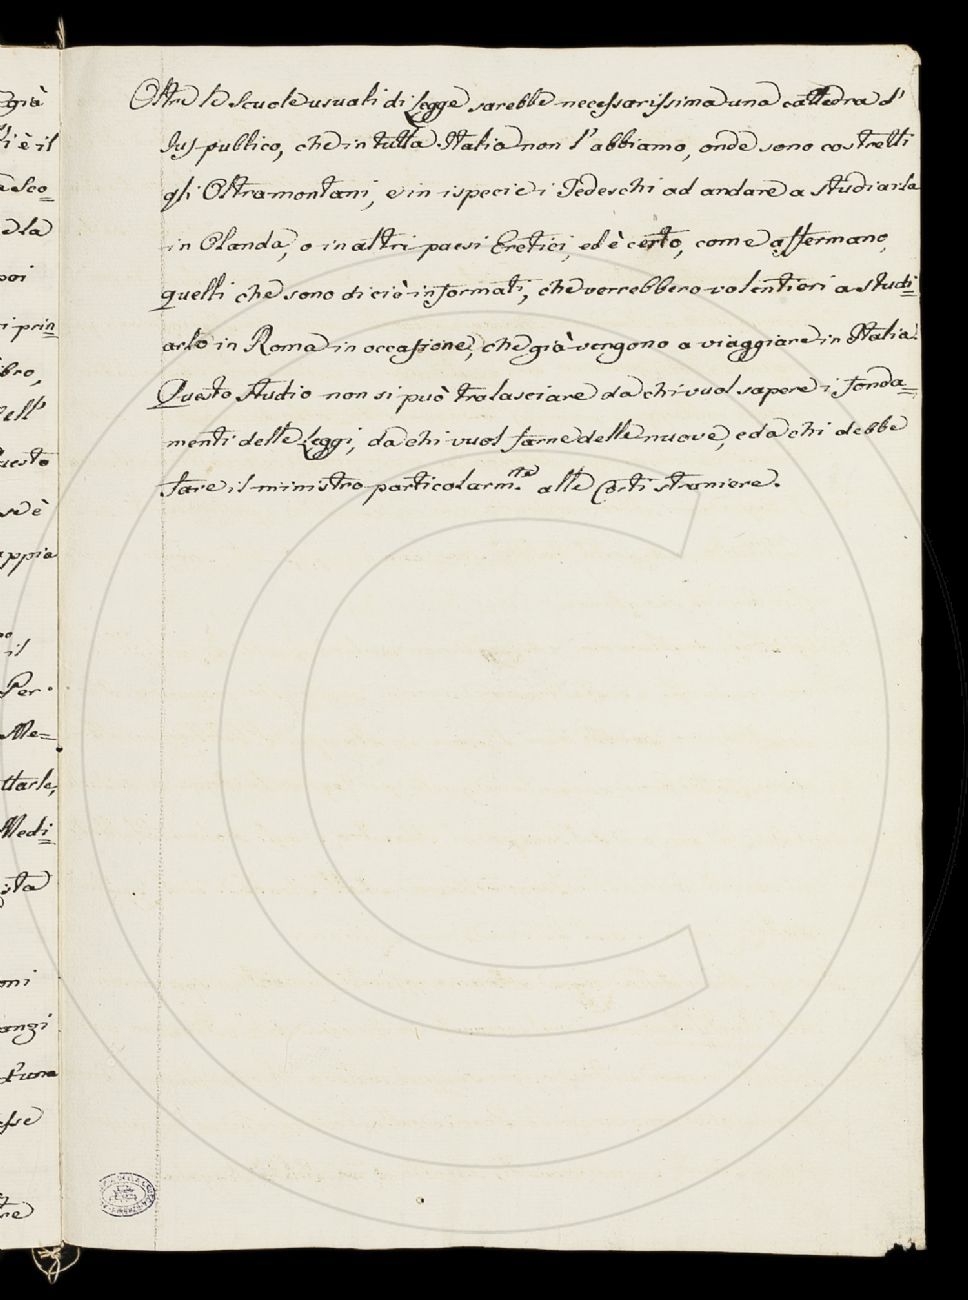 Oltre le Scuole usuali di Legge sarebbe necessarissima una cattedra d'
Jus-publico, che in tutta Italia non l'abbiamo, onde sono costretti
gli Oltramontani, e in ispecie i Tedeschi ad andare a studiarla
in Olanda, o in altri paesi Eretici, ed è certo, come affermano,
quelli che sono di ciò informati, che verrebbero volentieri a studi=
arlo in Roma in occasione, che già vengono a viaggiare in Italia.
Questo studio non si può tralasciare da chi vuol sapere i fonda=
menti delle Leggi, da chi vuol farne delle nuove, e da chi debbe
fare il ministro particolarm.te alle Corti straniere.
già
è il
Sco=
la
poi
prin=
bro,
uesto
se è
appia
il
Per
Me=
ttarle,
Medi=
sta
oni
anzi
esse
tre